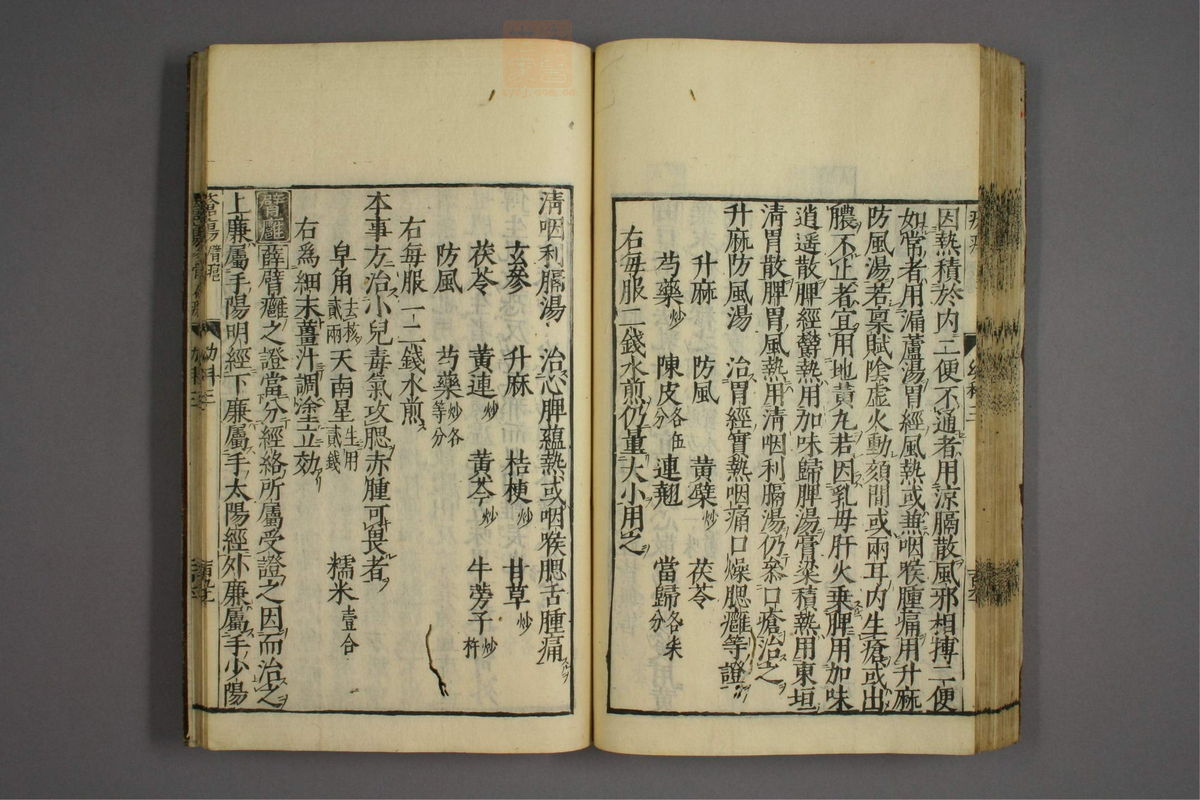 因熱積於内二便不通者用涼膈散風邪相搏二便
如常者用漏蘆湯胃經風熱或兼咽喉腫痛用升麻
防風湯若稟賦陰虚火動頦間或兩耳内生瘡或出
膿不止者宜用地黄丸若因乳母肝火乗脾用加味
逍遥散脾經鬱熱用加味歸脾湯膏粱積熱用東垣
清胃散脾胃風熱用清咽利膈湯仍叅口瘡治之
升麻防風湯　治胃經實熱咽痛口燥腮癰等證
升麻　防風　黄蘗炒　茯苓
芍藥炒　陳皮各伍分　連翹　當歸各柒分
右毎服二錢水煎仍量大小用之
清咽利膈湯　治心脾蘊熱或咽喉腮舌腫痛
玄參　升麻　桔梗炒　甘草炒
茯苓　黄連炒　黄芩炒　牛蒡子炒杵
防風　芍藥炒各等分
右毎服一二錢水煎
本事方治小兒毒氣攻腮赤腫可畏者
皁角去核貳兩　天南星生用貳錢　糯米壹合
右爲細末薑汁調塗立効
臂癰　薛臂癰之證當分經絡所屬受證之因而治之
上廉屬手陽明經下廉屬手太陽經外廉屬手少陽
幼科三